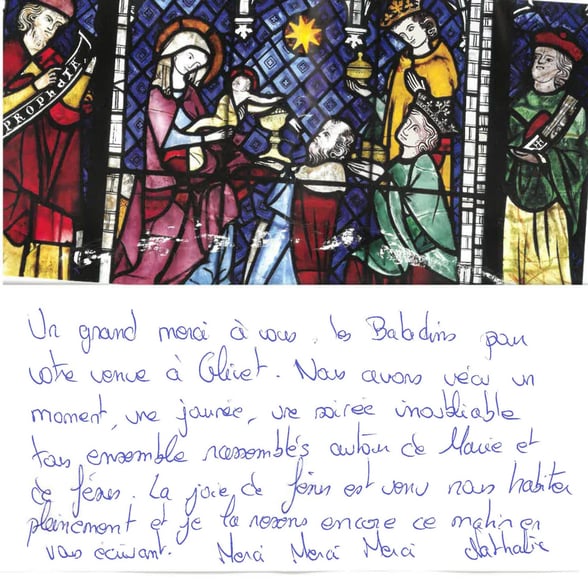 PROPHETIA
Un grand merci à vous, les Baladins pour
votre venue à Olivet. Nous avons vécu un
moment, une journée, une soirée inoubliable
tous ensemble rassemblés autour de Marie et
de Jésus. La joie de Jésus est venu nous habiter
pleinement et je la ressens encore ce matin en
vous écrivant. Merci Merci Merci Nathalie